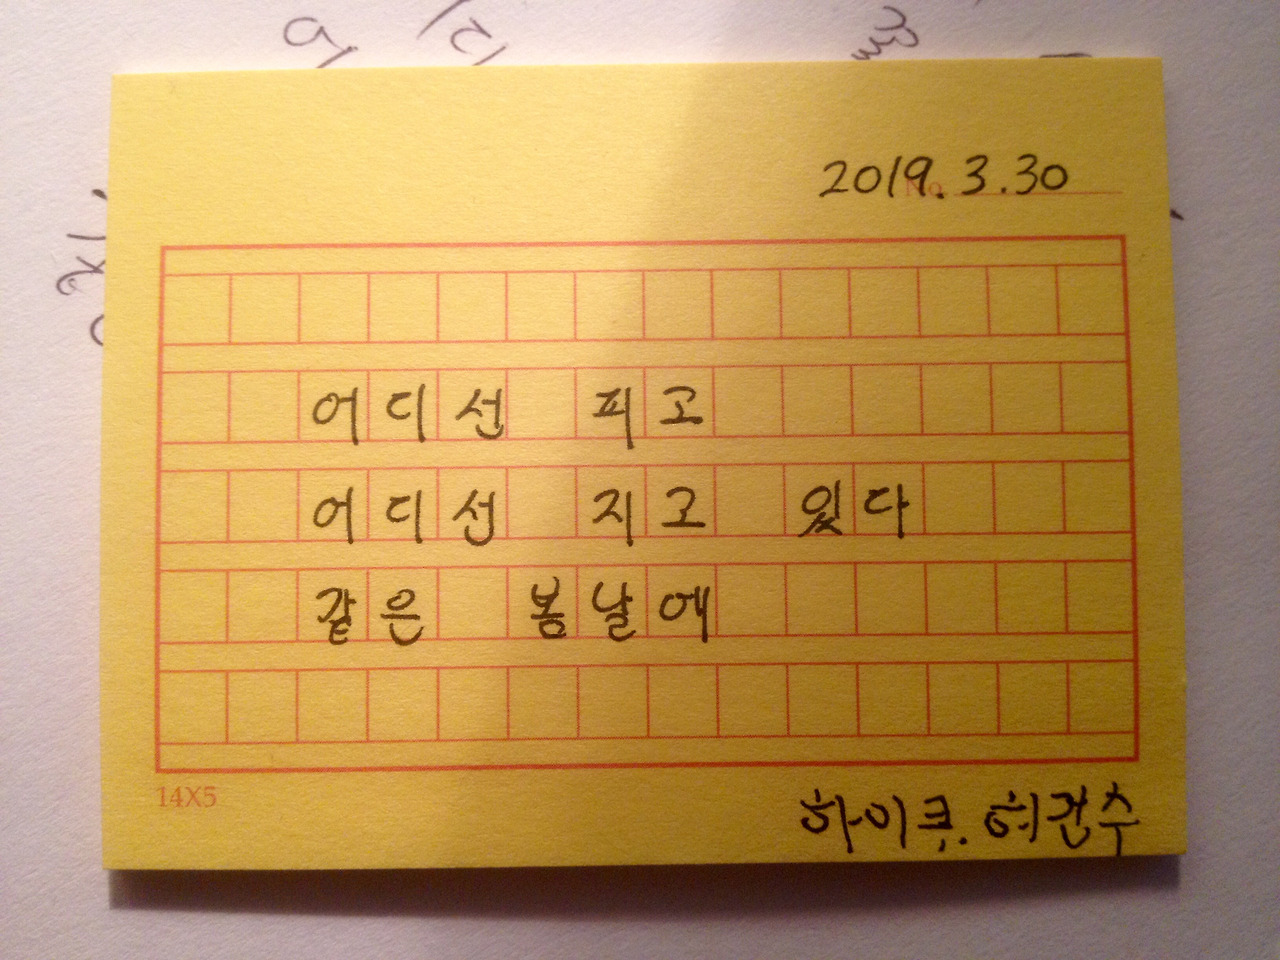 2019. 3. 30
No.
어디선 피고
어디선 지고 있다
같은 봄날에
14X5
하이쿠. 허건수